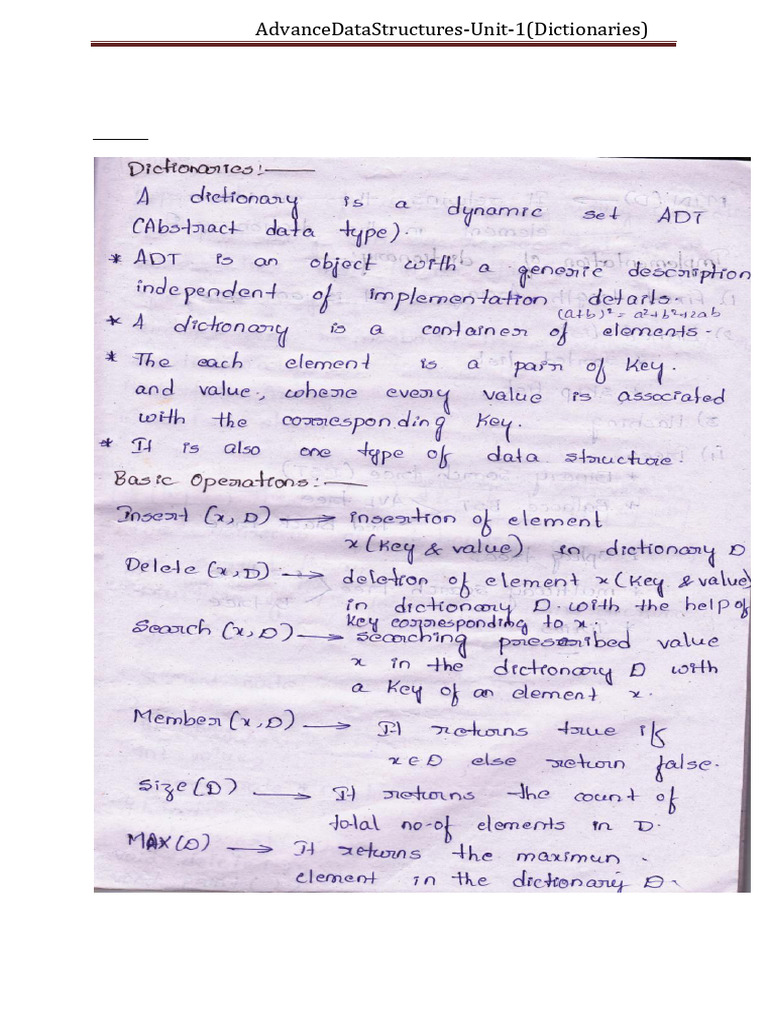 AdvanceDataStructures-Unit-1(Dictionaries)
Dictionaries:—
A dictionary is a dynamic set ADT
(Abstract data type).
* ADT is an object with a generic description
independent of implementation details.
(a+b)² = a²+b²+2ab
* A dictionary is a container of elements.
* The each element is a pair of key.
and value, where every value is associated
with the corresponding key.
* It is also one type of data structure.
Basic Operations:—
Insert (x, D) → insertion of element
x (key & value) in dictionary D
Delete (x, D) → deletion of element x (key & value)
in dictionary D. with the help of
key corresponding to x.
Search (x, D) → searching prescribed value
x in the dictionary D with
a key of an element x.
Member (x, D) → It returns true if
x ∈ D else return false.
Size (D) → It returns the count of
total no-of elements in D.
MAX (D) → It returns the maximun
element in the dictionary D.